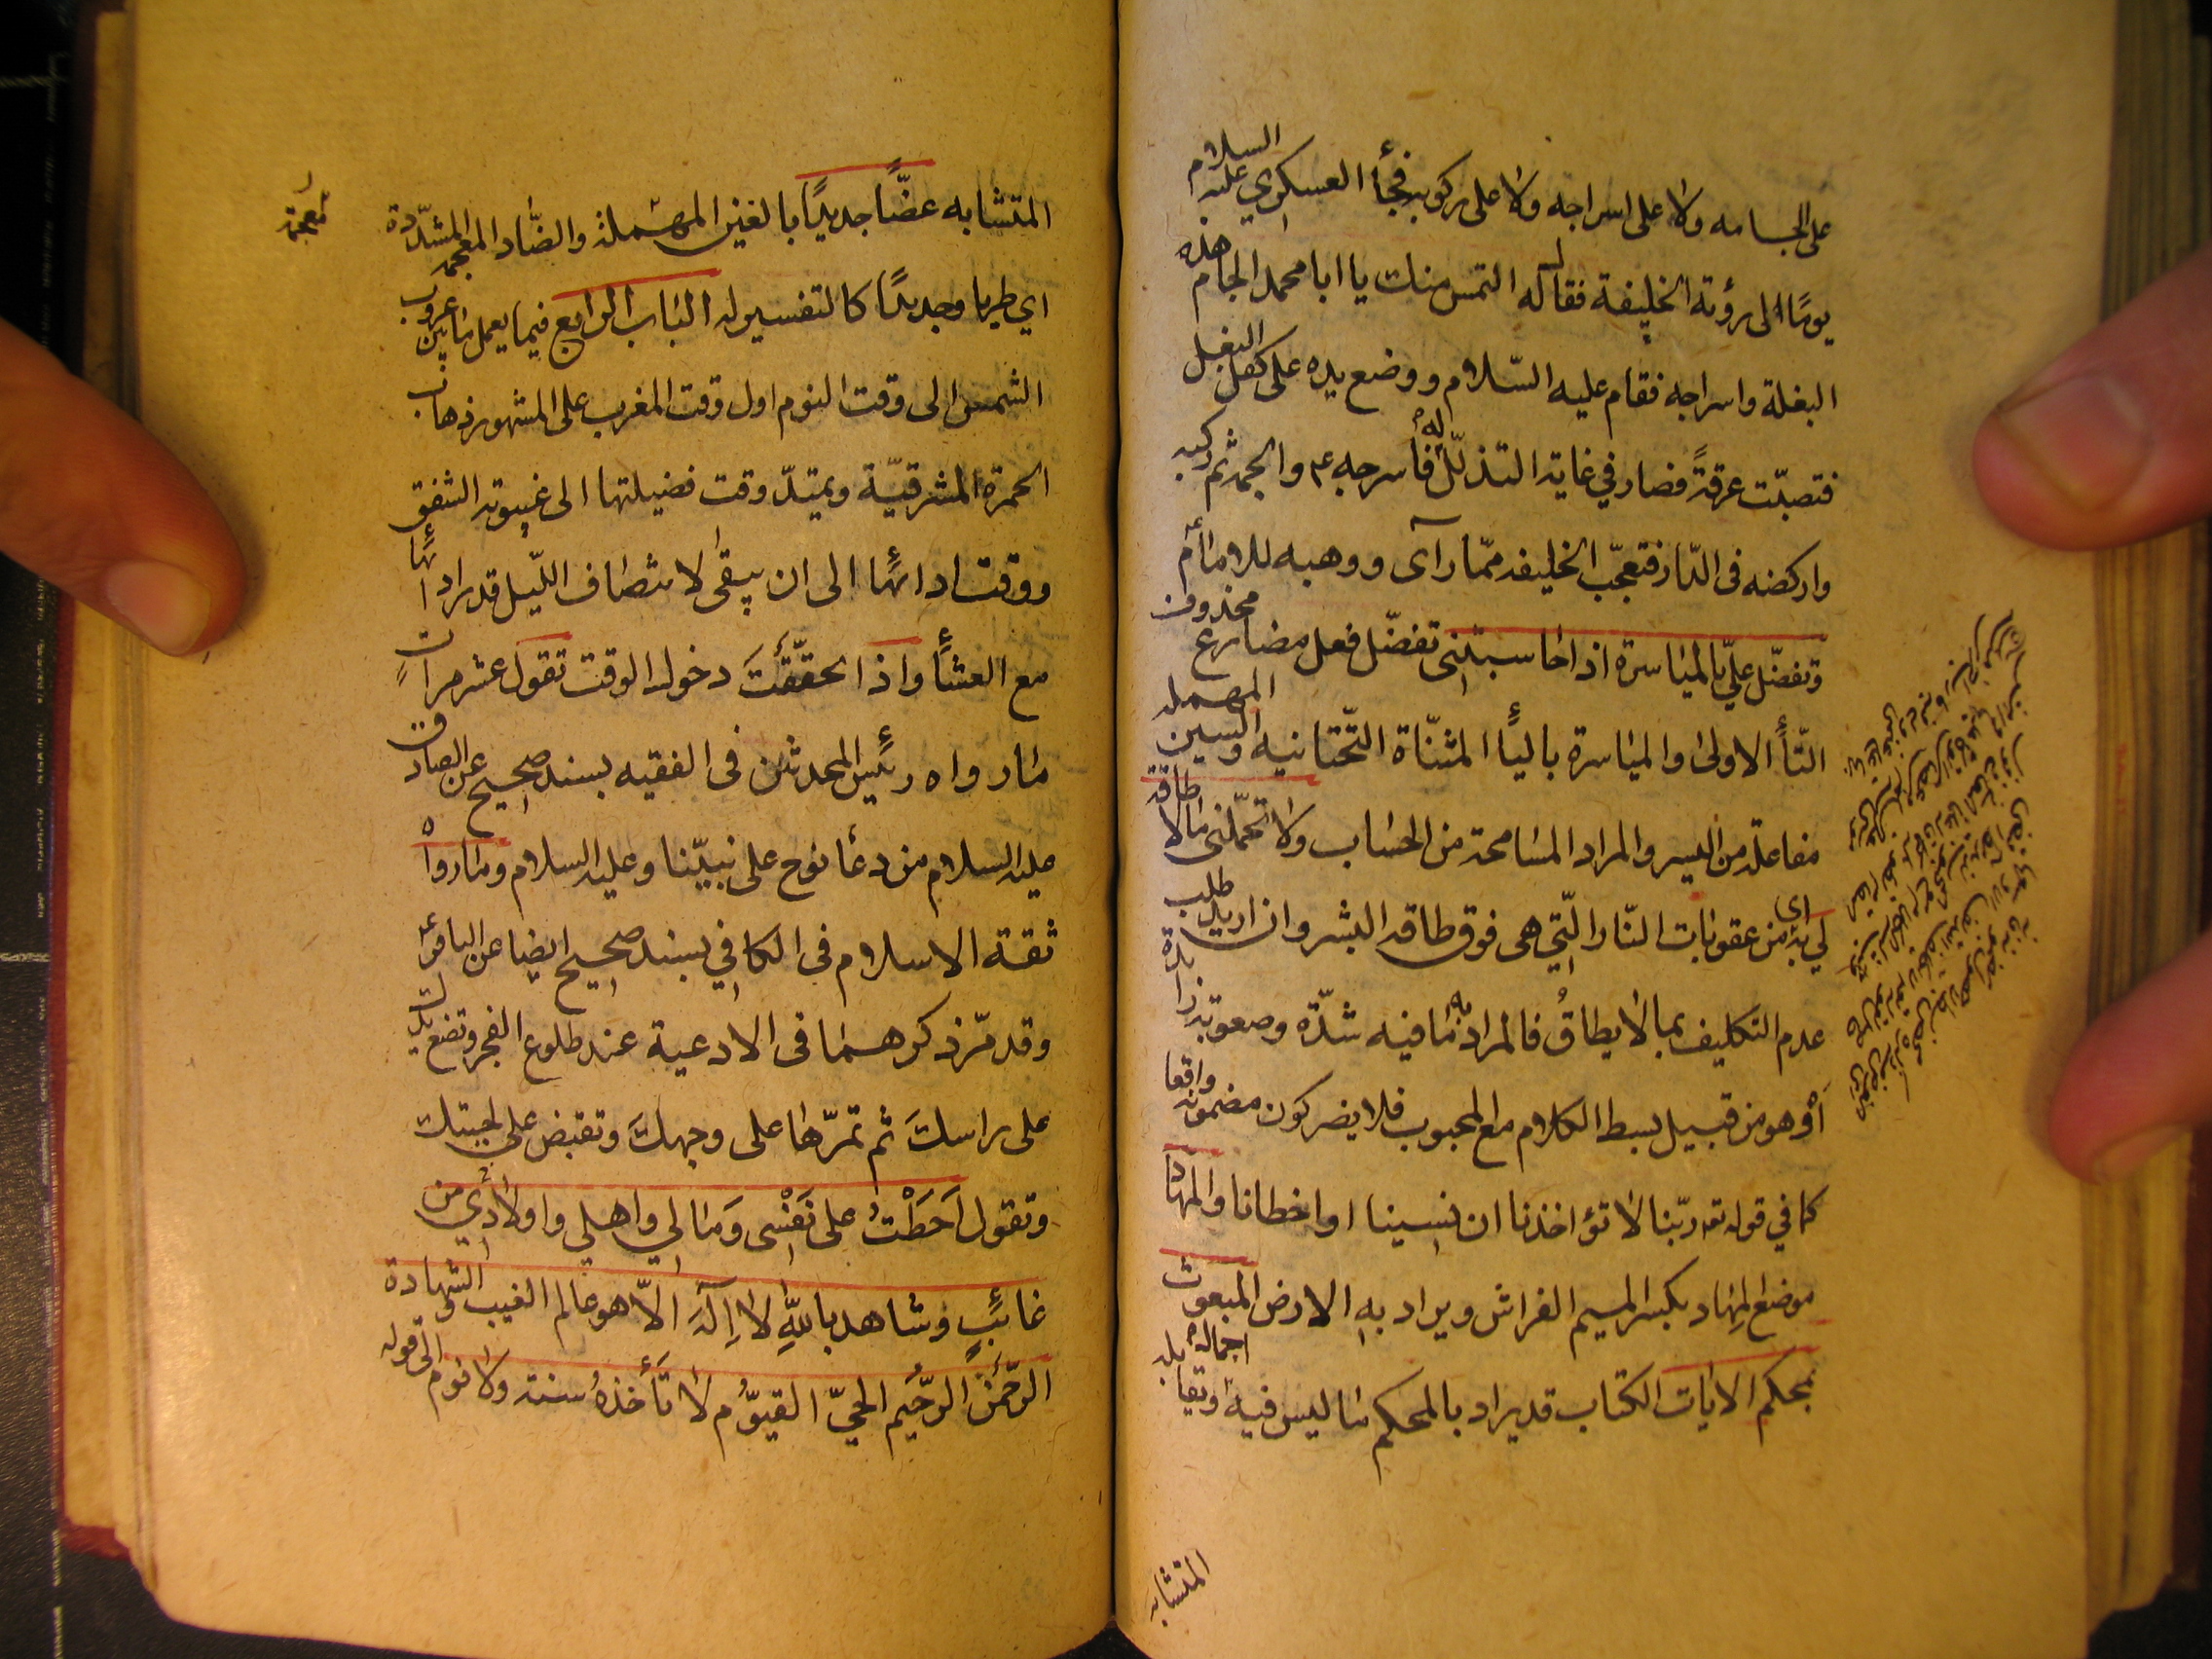 على الجامه ولا على اسراجه ولا على ركوبه فجأ العسكري عليه السلام
يومًا الى رؤية الخليفة فقال له التمس منك يا ابا محمد الجام هذه
البغلة واسراجه فقام عليه السّلام ووضع يده على كفل البغل
فتصبّت عرقةً فصار في غاية التذلّل له فأسرجه ع والجمه ثم ركبه
واركضه فى الدّار فتعجّب الخليفه ممّا رآى ووهبه للامام ع
وتفضّل عليّ بالمياسرة اذا حاسبتنى تفضّل فعل مضارع محذوف
التّأ الاولى والمياسرة باليأ المثنّاة التّحتانيه والسين المهمله
مفاعلة من اليسر والمراد المسامحة من الحساب ولا تحمّلنى مالا طاقة
لي به اى من عقوبات النّار الّتي هى فوق طاقه البشر وان اريد طلب
عدم التكليف بما لا يطاقُ فالمراد به ما فيه شدّة وصعوبة زايدة
أو هو من قبيل بسط الكلام مع المحبوب فلا يضر كون مضمونه واقعا
كما في قوله تع ربّنا لا تؤاخذنا ان نسينا او اخطانا والمهاد
موضع المِهاد بكسر الميم الفراش ويراد به الارض المبعوث
بمحكم الايات الكتاب قد يراد بالمحكم ما ليس فيه اجمال ويقابله
المتشابه
المتشابه غضًّا جديدًا بالغين المهملة والضّاد المعجمه المشدّدة
معجمة
اي طريا وجديدًا كالتفسير له الباب الرابع فيما يعمل ما بين غروب
الشمس الى وقت النوم اول وقت المغرب على المشهور ذهاب
الحمرة المشرقيّة ويمتدّ وقت فضيلتها الى غيبوبة الشفق
ووقت ادائها الى ان يبقى لانتصاف اللّيل قدر ادائها
مع العشأ واذا تحقّقتَ دخول الوقت تقول عشر مرات
ما رواه رئيس المحدثين فى الفقيه بسند صحيح عن الصادق
عليه السلام من دعا نوح على نبيّنا وعليه السلام وما رواه
ثقة الاسلام فى الكافي بسند صحيح ايضا عن الباقر ع
وقد مرّ ذكرهما فى الادعية عند طلوع الفجر وتضع يدك
على راسكَ ثم تمرّها على وجهكَ وتقبض على لحيتك
وتقول اَحَطْتُ على نَفْسى وَمالي واهلي واولادي من
غائبٍ وشاهد باللّهِ لا اِلٰهَ الاّ هو عالم الغيب والشهادة
الرّحمنُ الرّحيم الحيّ القيوّم لا تأخذهُ سنة ولا نوم الى قوله